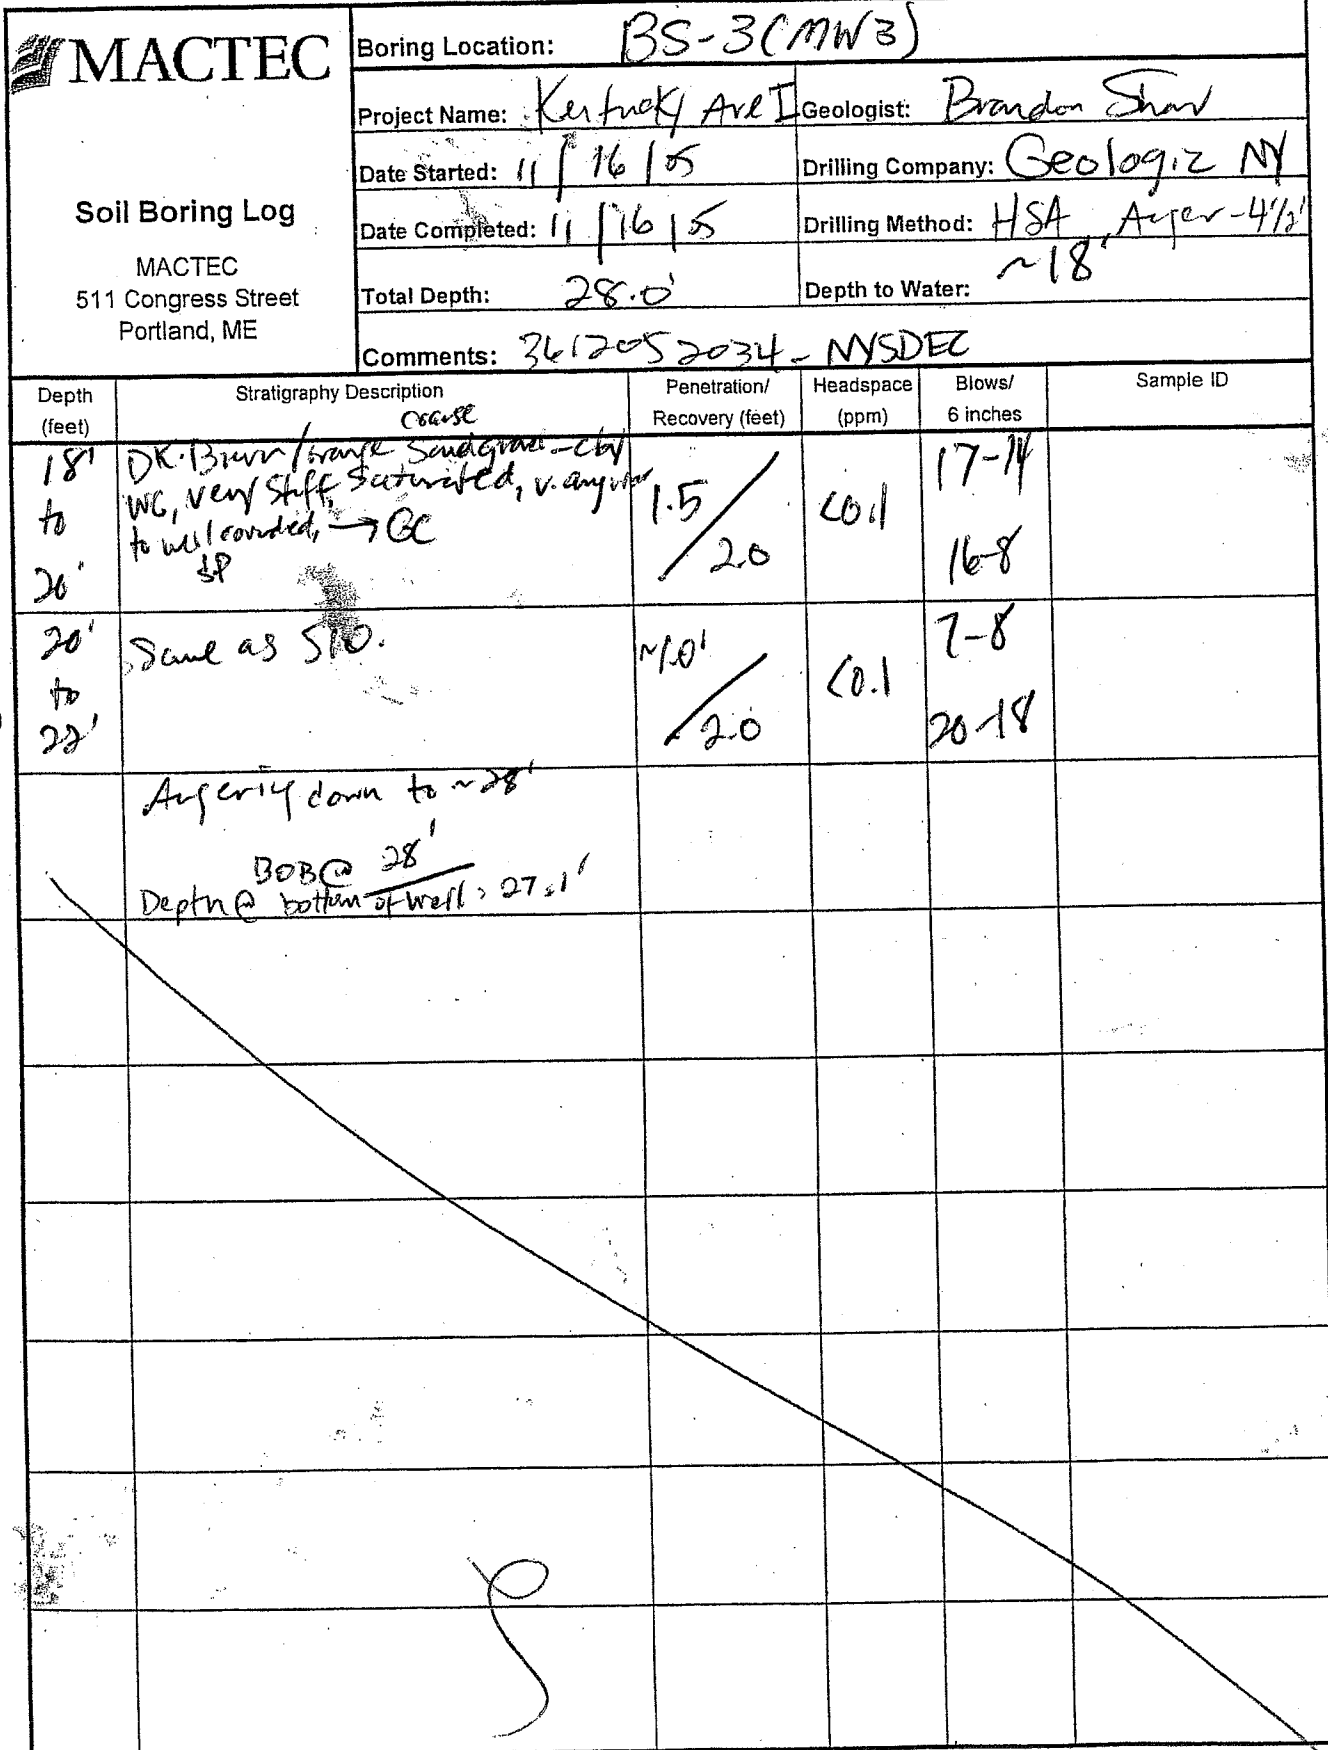 MACTEC
Soil Boring Log
MACTEC
511 Congress Street
Portland, ME
Boring Location: BS-3(MW3)
Project Name: Kentucky Ave I Geologist: Brandon Shaw
Date Started: 11/16/05 Drilling Company: Geologic NY
Date Completed: 11/16/05 Drilling Method: HSA, Auger-4 1/2'
Total Depth: 28.0' Depth to Water: ~18'
Comments: 3612052034 - NYSDEC
Depth (feet) Stratigraphy Description Penetration/ Recovery (feet) Headspace (ppm) Blows/ 6 inches Sample ID
coarse
18' DK. Brown/orange Sand gravel-clay 17-14
to WC, very stiff, saturated, v. angular 1.5/2.0 <0.1
to well rounded, → GC 16-8
20' SP
20' Same as S10. ~1.0'/2.0 <0.1 7-8
to
22' 20-18
Augering down to ~28'
BOB@ 28'
Depth@ bottom of well = 27.1'